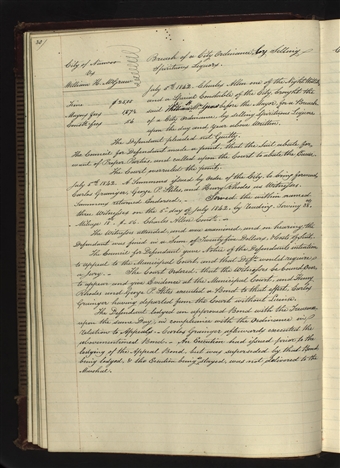 City of Nauvoo
vs
William H. McGraw
Breach of a City Ordinance, by Selling
Spiritous Liquors.
July 5th 1842. Charles Allen one of the Night Watch
and a Special Constable of the City, brought the
before the Mayor, for a Breach
of a City ordinance by selling Spiritous Liquors
upon the day and year above Written.
Fine $25,00
Mayors fees
Const. fees
The Defendant pleaded not Guilty.
The Council for Defendant made a point that the Suit abate for
want of Proper Parties and called upon the Court to abate the Cause.
The Court overruled the point.
July 5th 1842. A Summons issued by order of the City to bring forward
Carlos Granger, George P. Stiles, and Henry Rhodes as Witnesses.
Summons returned Endorsed, Served the within named
three Witnesses on the 5th day of July 1842, by reading. Serving
Mileage Charles Allen Const.
The Witnesses attended, and were examined, and on hearing, the
Defendant was fined in a Sum of Twenty five Dollars,
The Council for Defendant gave Notice of the Defendants intention
to appeal to the Municipal Court and that Defts. would require
a Jury. The Court ordered, that the Witnesses be bound over
to appear and give Evidence at the Municipal Court, and Henry
Rhodes and George P. Stiles executed a Bond to that effect, Carlos
Granger having departed from the Court without Leave.
The Defendant lodged an approved Bond with the Treasurer
upon the same Day, in compliance with the Ordinance in
relation to Appeals. Carlos Granger afterwards executed the
abovementioned Bond. An Execution had issued prior to the
lodging of the Appeal Bond, but was superseded by that Bond
being lodged, & the Execution being stayed, was not delivered to the
Marshal.